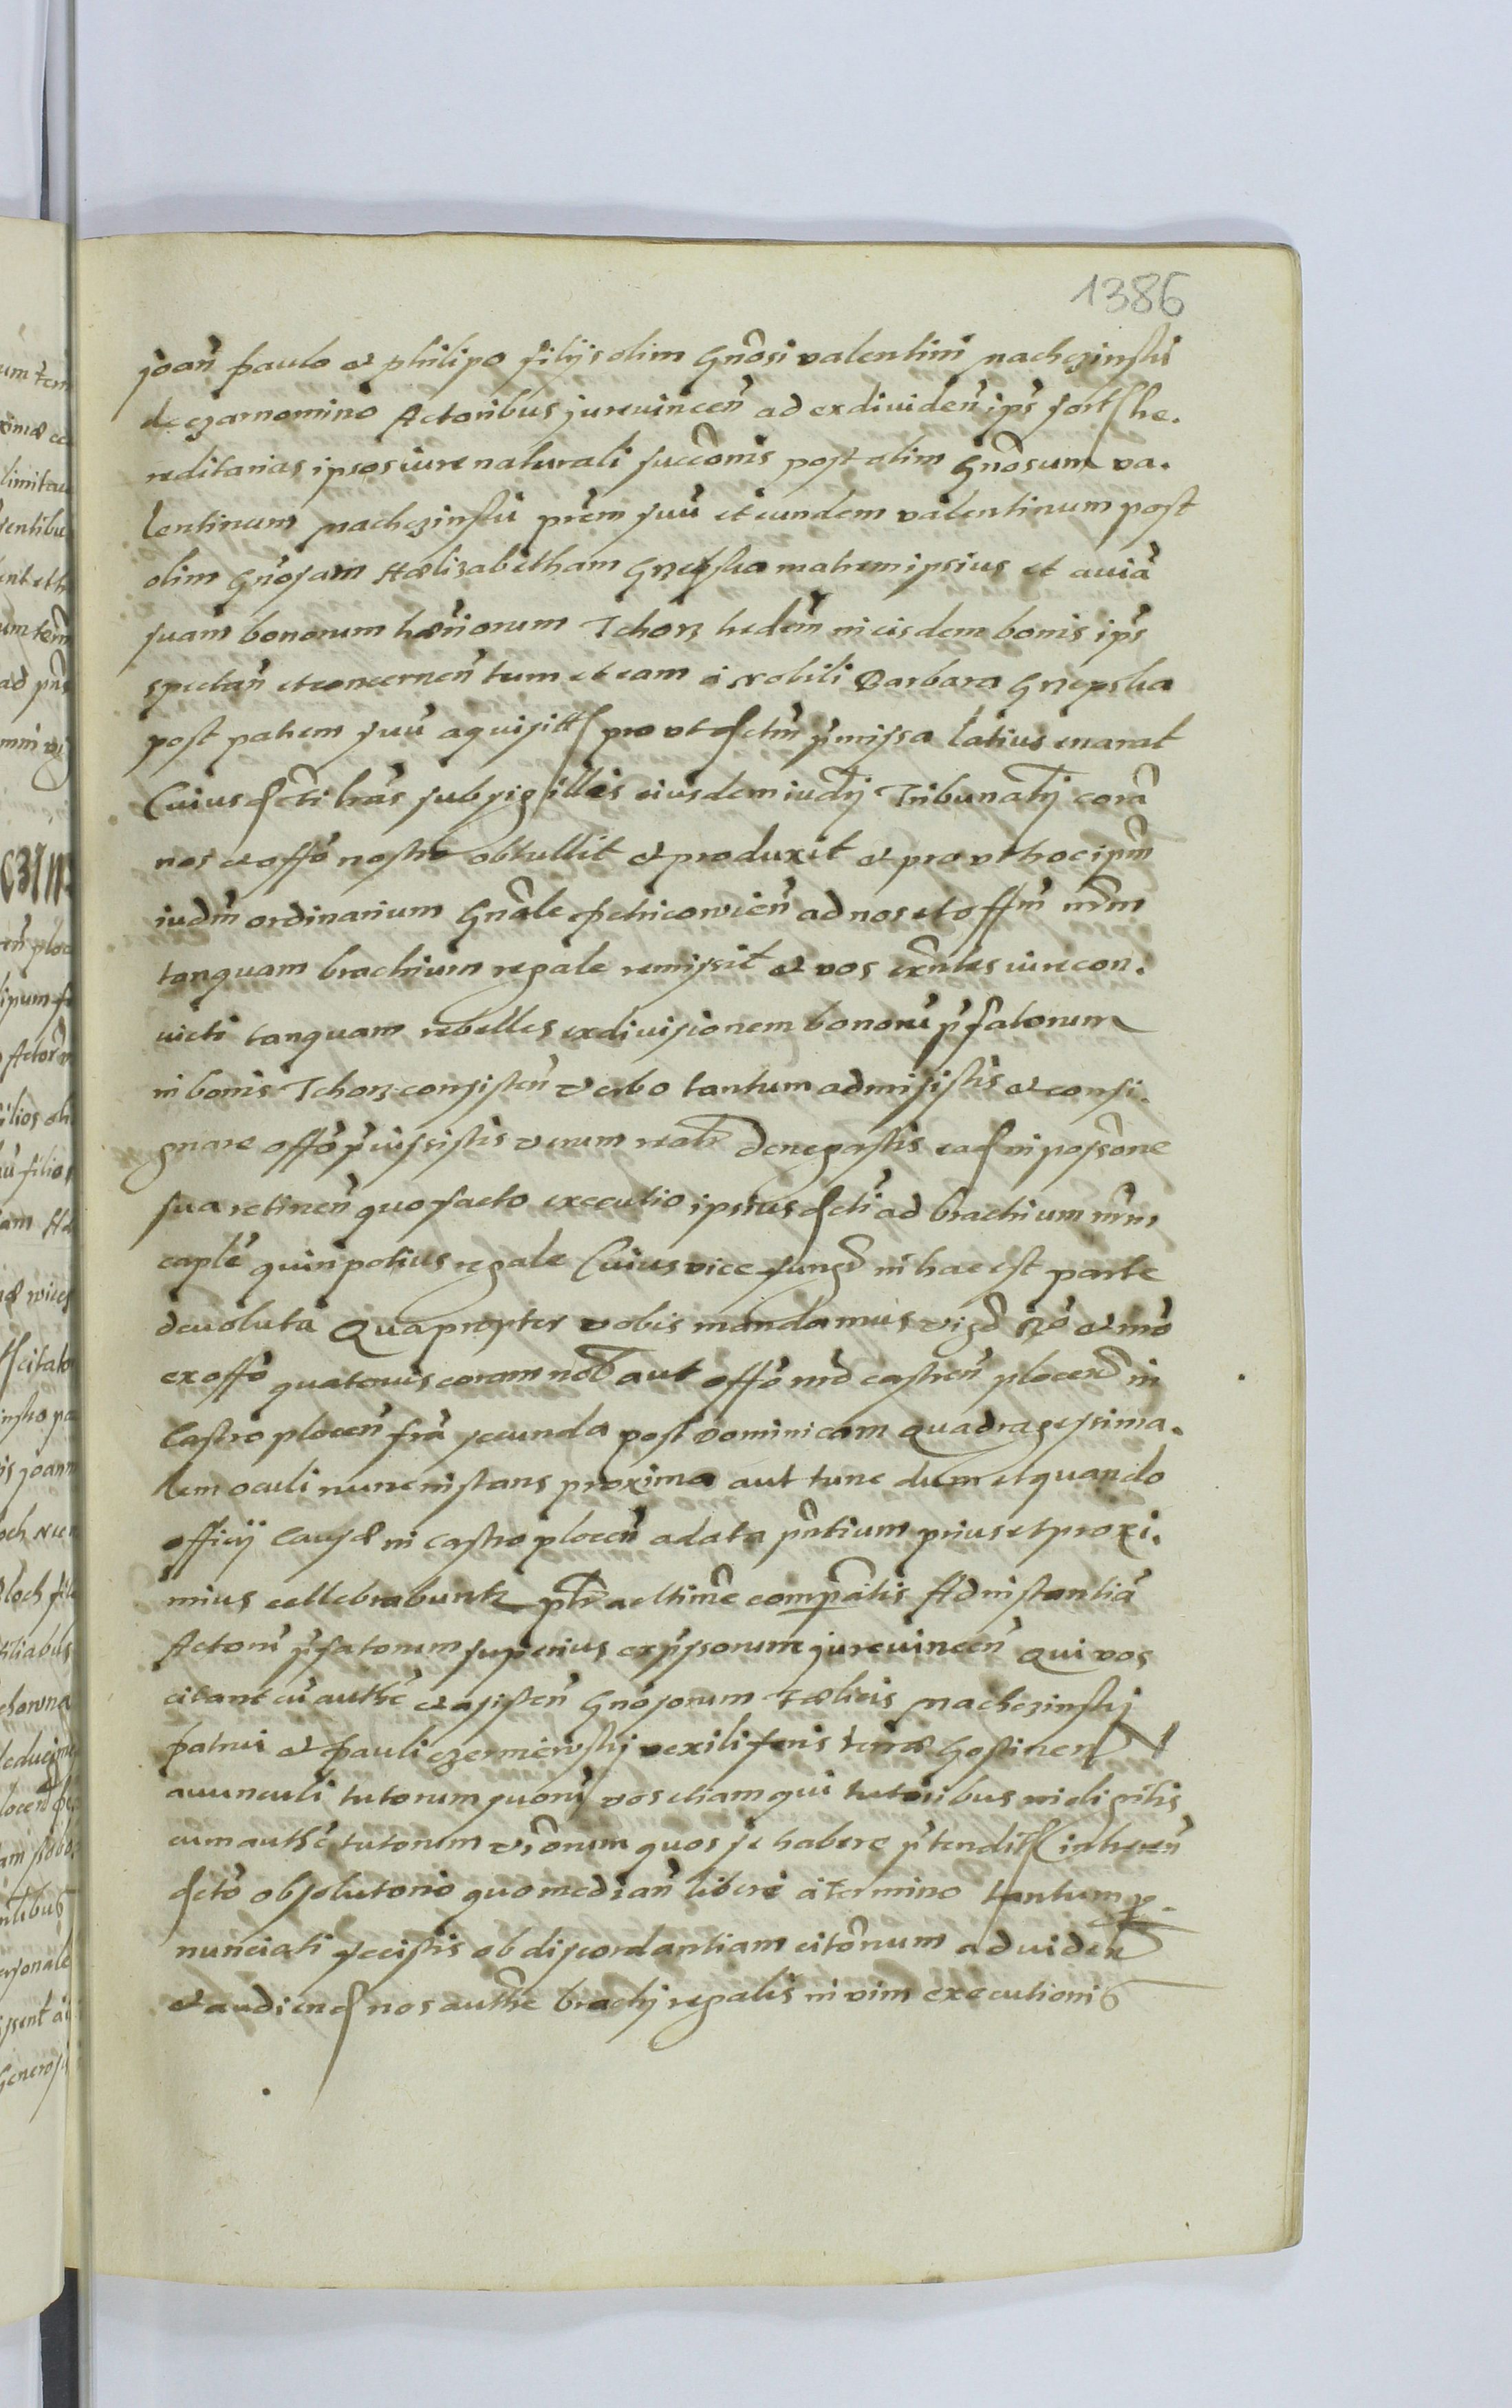 1386
joan̄ paulo et philipo filijs olim Gn̄osi valentini nacheʒinski
de cʒarnomino Actoribus jurevincen̄ ad exdividen̄ ip̄s sort he-
reditarias ipsos iure naturali succ̄onis post olim Gn̄osum va-
lentinum nacheʒinski pr̄em suū et eundem valentinum post
olim Gn̄osam Hælizabetham Gʒepska matrem ipsius et aviā
suam bonorum hær̄iorum Tchorʒ ibid̄em in eisdem bonis ip̄s
spectan̄ et concernen̄ tum et eam á Nobili Barbara Gʒepska
post patrem suū aquisitt prout dctm̄ p̄missa latius enarat
Cuius dcti lr̄as sub sigillis eiusdem iudicij Tribunalij corā
nos et offō nostro obtullit et produxit et prout hoc ipm̄
iudm̄ ordinarium Gn̄ale pctricovien̄ ad nos et offm̄ nr̄m
tanquam brachium regale remisit et vos exn̄tes iure con-
victi tanquam rebelles exdivisionem bonorū p̄fatorum
in bonis Tchorʒ consisten̄ verbo tantum admisistis et consi-
gnare offō p̄iussistis verum realr̄ denegastis ead in poss̄one
sua retinen̄ quo facto executio ipsius dcti ad brachium nr̄m
cap̄le quin potius regale Cuius vice funḡ in hac est parte
devoluta Quapropter vobis mandamus viḡ R̄o et m̄o
ex offō quatenus coram nob̄ aut offō nr̄o castren̄ plocen̄ in
Castro plocen̄ fr̄a secunda post Dominicam quadragesima-
lem oculi nunc instans proxima aut tunc dum et quando
officij causæ in castro plocen̄ a data p̄ntium prius et proxi-
mius cellebrabuntr p̄lr ac ltime comp̄eatis Ad instantiā
Actorū p̄fatorum superius exp̄ssorum jurevincen̄ Qui vos
citant cū authē et asisten̄ Gn̄osorum Fælicis nacheʒinskj
patrui et pauli cʒerniewskj vexiliferis terræ Gostinen̄
avunculi tutorum suorū vos etiam qui tutoribus indigētis
cum authē tutorum vr̄orum quos se habere p̄tenditis inheren̄
dcto obsolutorio quo median̄ liberi a termino tantum p-
nunciati fecistis ob discordantiam cit̄onum ad viden̄
et audiend nos authē brachij regalis in vim executionis